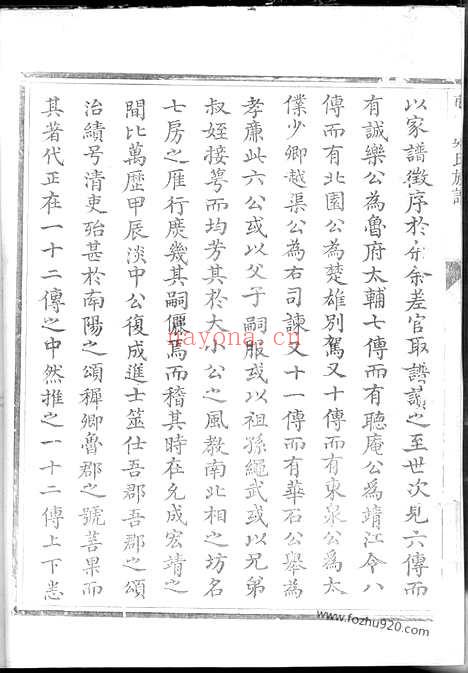 以家譜徵序於余余差官取譜讀之至世次見六傳而
有誠樂公為魯府太輔七傳而有聽庵公為靖江令八
傳而有北園公為楚雄別駕又十傳而有東泉公為太
僕少卿越渠公為右司諫又十一傳而有華石公舉為
孝廉此六公或以父子嗣服或以祖孫繩武或以兄弟
叔姪接萼而均芳其於大小公之風教南北相之坊名
七房之雁行庶幾其嗣儷焉而稽其時在允成宏靖之
間比萬歷甲辰淡中公復成進士筮仕吾郡吾郡之頌
治績号清吏殆甚於南陽之頌稚卿魯郡之號善果而
其著代正在一十二傳之中然推之一十二傳上下悉
氏族譜
nayona.cn
www.fozhu920.com